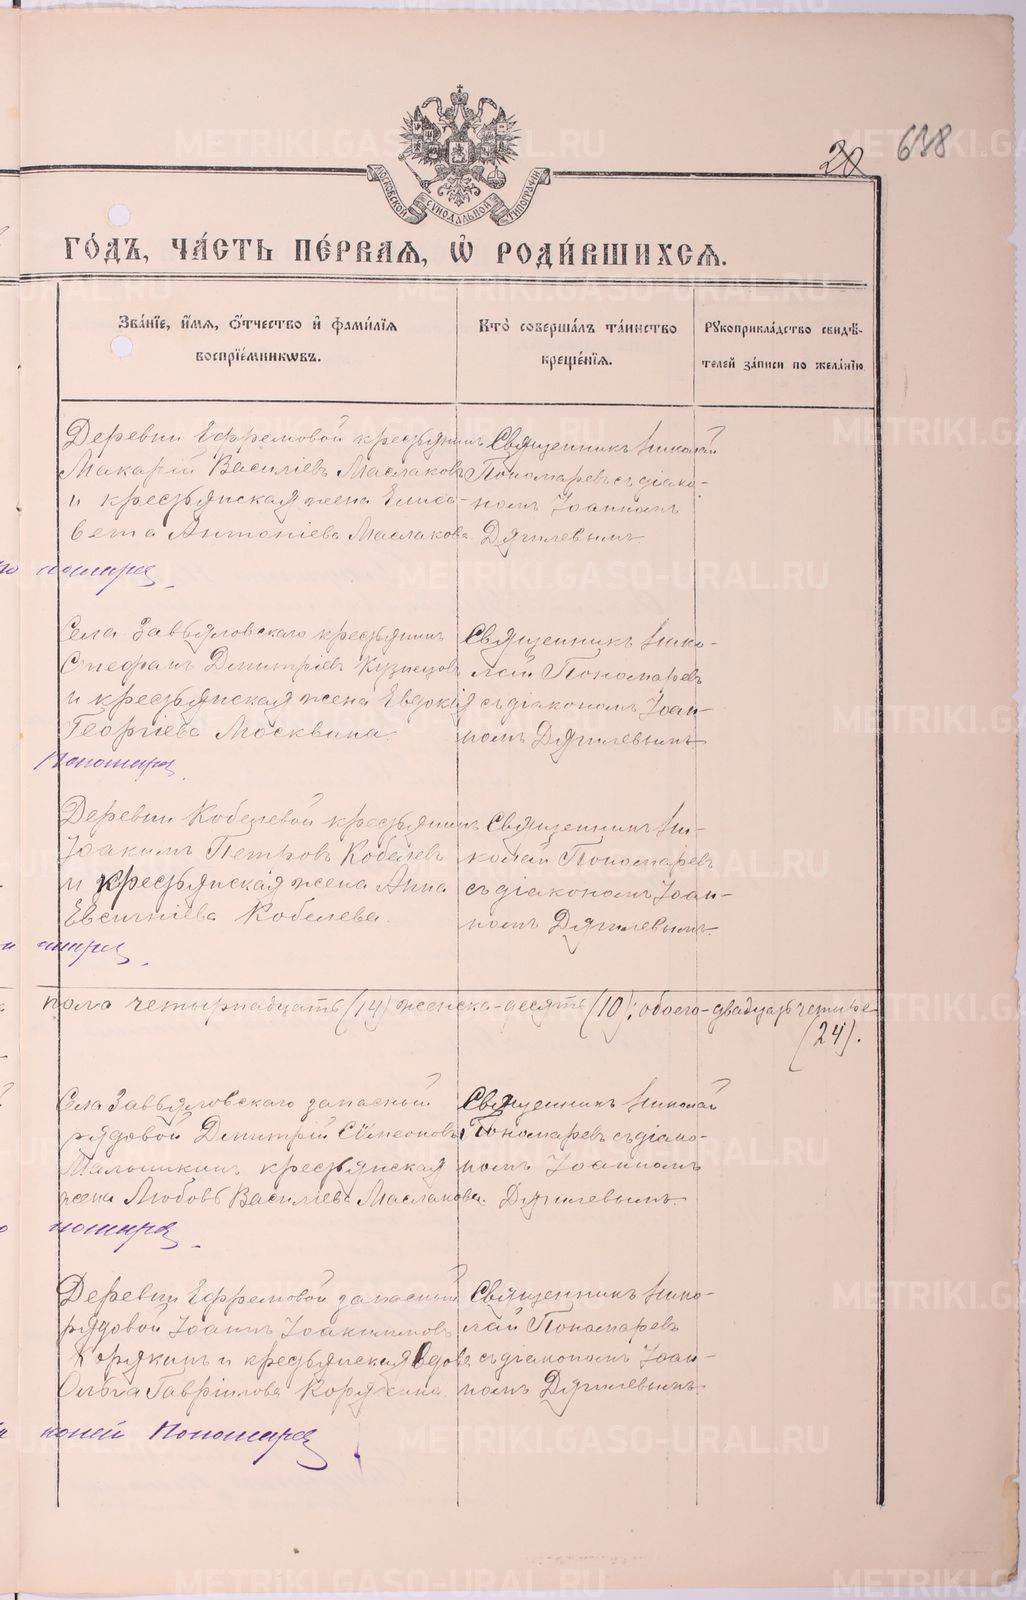 638
20
МОСКОВСКОЙ СѴНОДАЛЬНОЙ ТИПОГРАФІИ
ГО́ДЪ, ЧА́СТЬ ПЕ́РВАѦ, Ѡ҆ РОДИ́ВШИХСѦ.
Зва́нїе, и҆́мѧ, ѻ҆́тчество и҆ фами́лїѧ
воспрїе́мникѡвъ.
Кто̀ соверша́лъ та́инство
креще́нїѧ.
Рꙋкоприкла́дство свидѣ́-
телей за́писи по жела́нїю.
Деревни Ефремовой крестьянинъ
Макарій Василіевъ Маслаковъ
и крестьянская жена Елиса-
вета Антоніева Маслакова.
Священникъ Николай
Пономаревъ съ діако-
номъ Іоанномъ
Дягилевымъ.
Села Завьяловскаго крестьянинъ
Стефанъ Димитріевъ Кузнецовъ
и крестьянская жена Евдокія
Георгіева Москвина.
Священникъ Нико-
лай Пономаревъ
съ діакономъ Іоан-
номъ Дягилевымъ
Деревни Кобелевой крестьянинъ
Іоакимъ Петровъ Кобелевъ
и крестьянская жена Анна
Евсигніева Кобелева.
Священникъ Ни-
колай Пономаревъ
съ діакономъ Іоан-
номъ Дягилевымъ.
пола четырнадцать (14) женска-десять (10); обоего-двадцать четыре
(24).
Села Завьяловскаго запасный
рядовой Димитрій Сѵмеоновъ
Мальшкинъ крестьянская
жена Любовь Василіева Маслакова.
Священникъ Николай
Пономаревъ съ діако-
номъ Іоанномъ
Дягилевымъ.
Деревни Ефремовой запасный
рядовой Іоаннъ Іоакимовъ
Корякинъ и крестьянская вдова
Ольга Гавріилова Корякина
Священникъ Нико-
лай Пономаревъ
съ діакономъ Іоан-
номъ Дягилевымъ.
Пономарев
METRIKI.GASO-URAL.RU